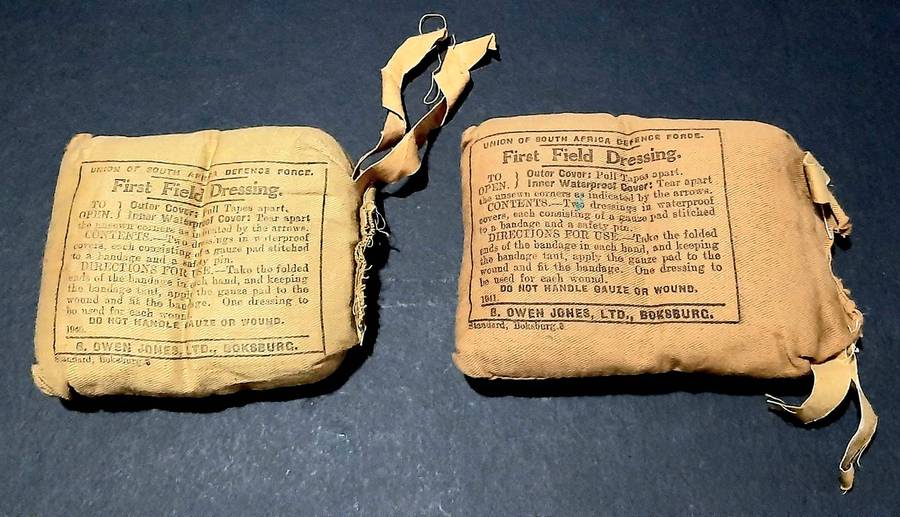 UNION OF SOUTH AFRICA DEFENCE FORCE.
First Field Dressing.
TO OPEN. } Outer Cover: Pull Tapes apart.
Inner Waterproof Cover: Tear apart
the unsewn corners as indicated by the arrows.
CONTENTS.—Two dressings in waterproof
covers, each consisting of a gauze pad stitched
to a bandage and a safety pin.
DIRECTIONS FOR USE.—Take the folded
ends of the bandage in each hand, and keeping
the bandage taut, apply the gauze pad to the
wound and fit the bandage. One dressing to
be used for each wound.
DO NOT HANDLE GAUZE OR WOUND.
1940.
S. OWEN JONES, LTD., BOKSBURG.
Standard, Boksburg.
UNION OF SOUTH AFRICA DEFENCE FORCE.
First Field Dressing.
TO OPEN. } Outer Cover: Pull Tapes apart.
Inner Waterproof Cover: Tear apart
the unsewn corners as indicated by the arrows.
CONTENTS.—Two dressings in waterproof
covers, each consisting of a gauze pad stitched
to a bandage and a safety pin.
DIRECTIONS FOR USE.—Take the folded
ends of the bandage in each hand, and keeping
the bandage taut, apply the gauze pad to the
wound and fit the bandage. One dressing to
be used for each wound.
DO NOT HANDLE GAUZE OR WOUND.
1941.
S. OWEN JONES, LTD., BOKSBURG.
Standard, Boksburg.